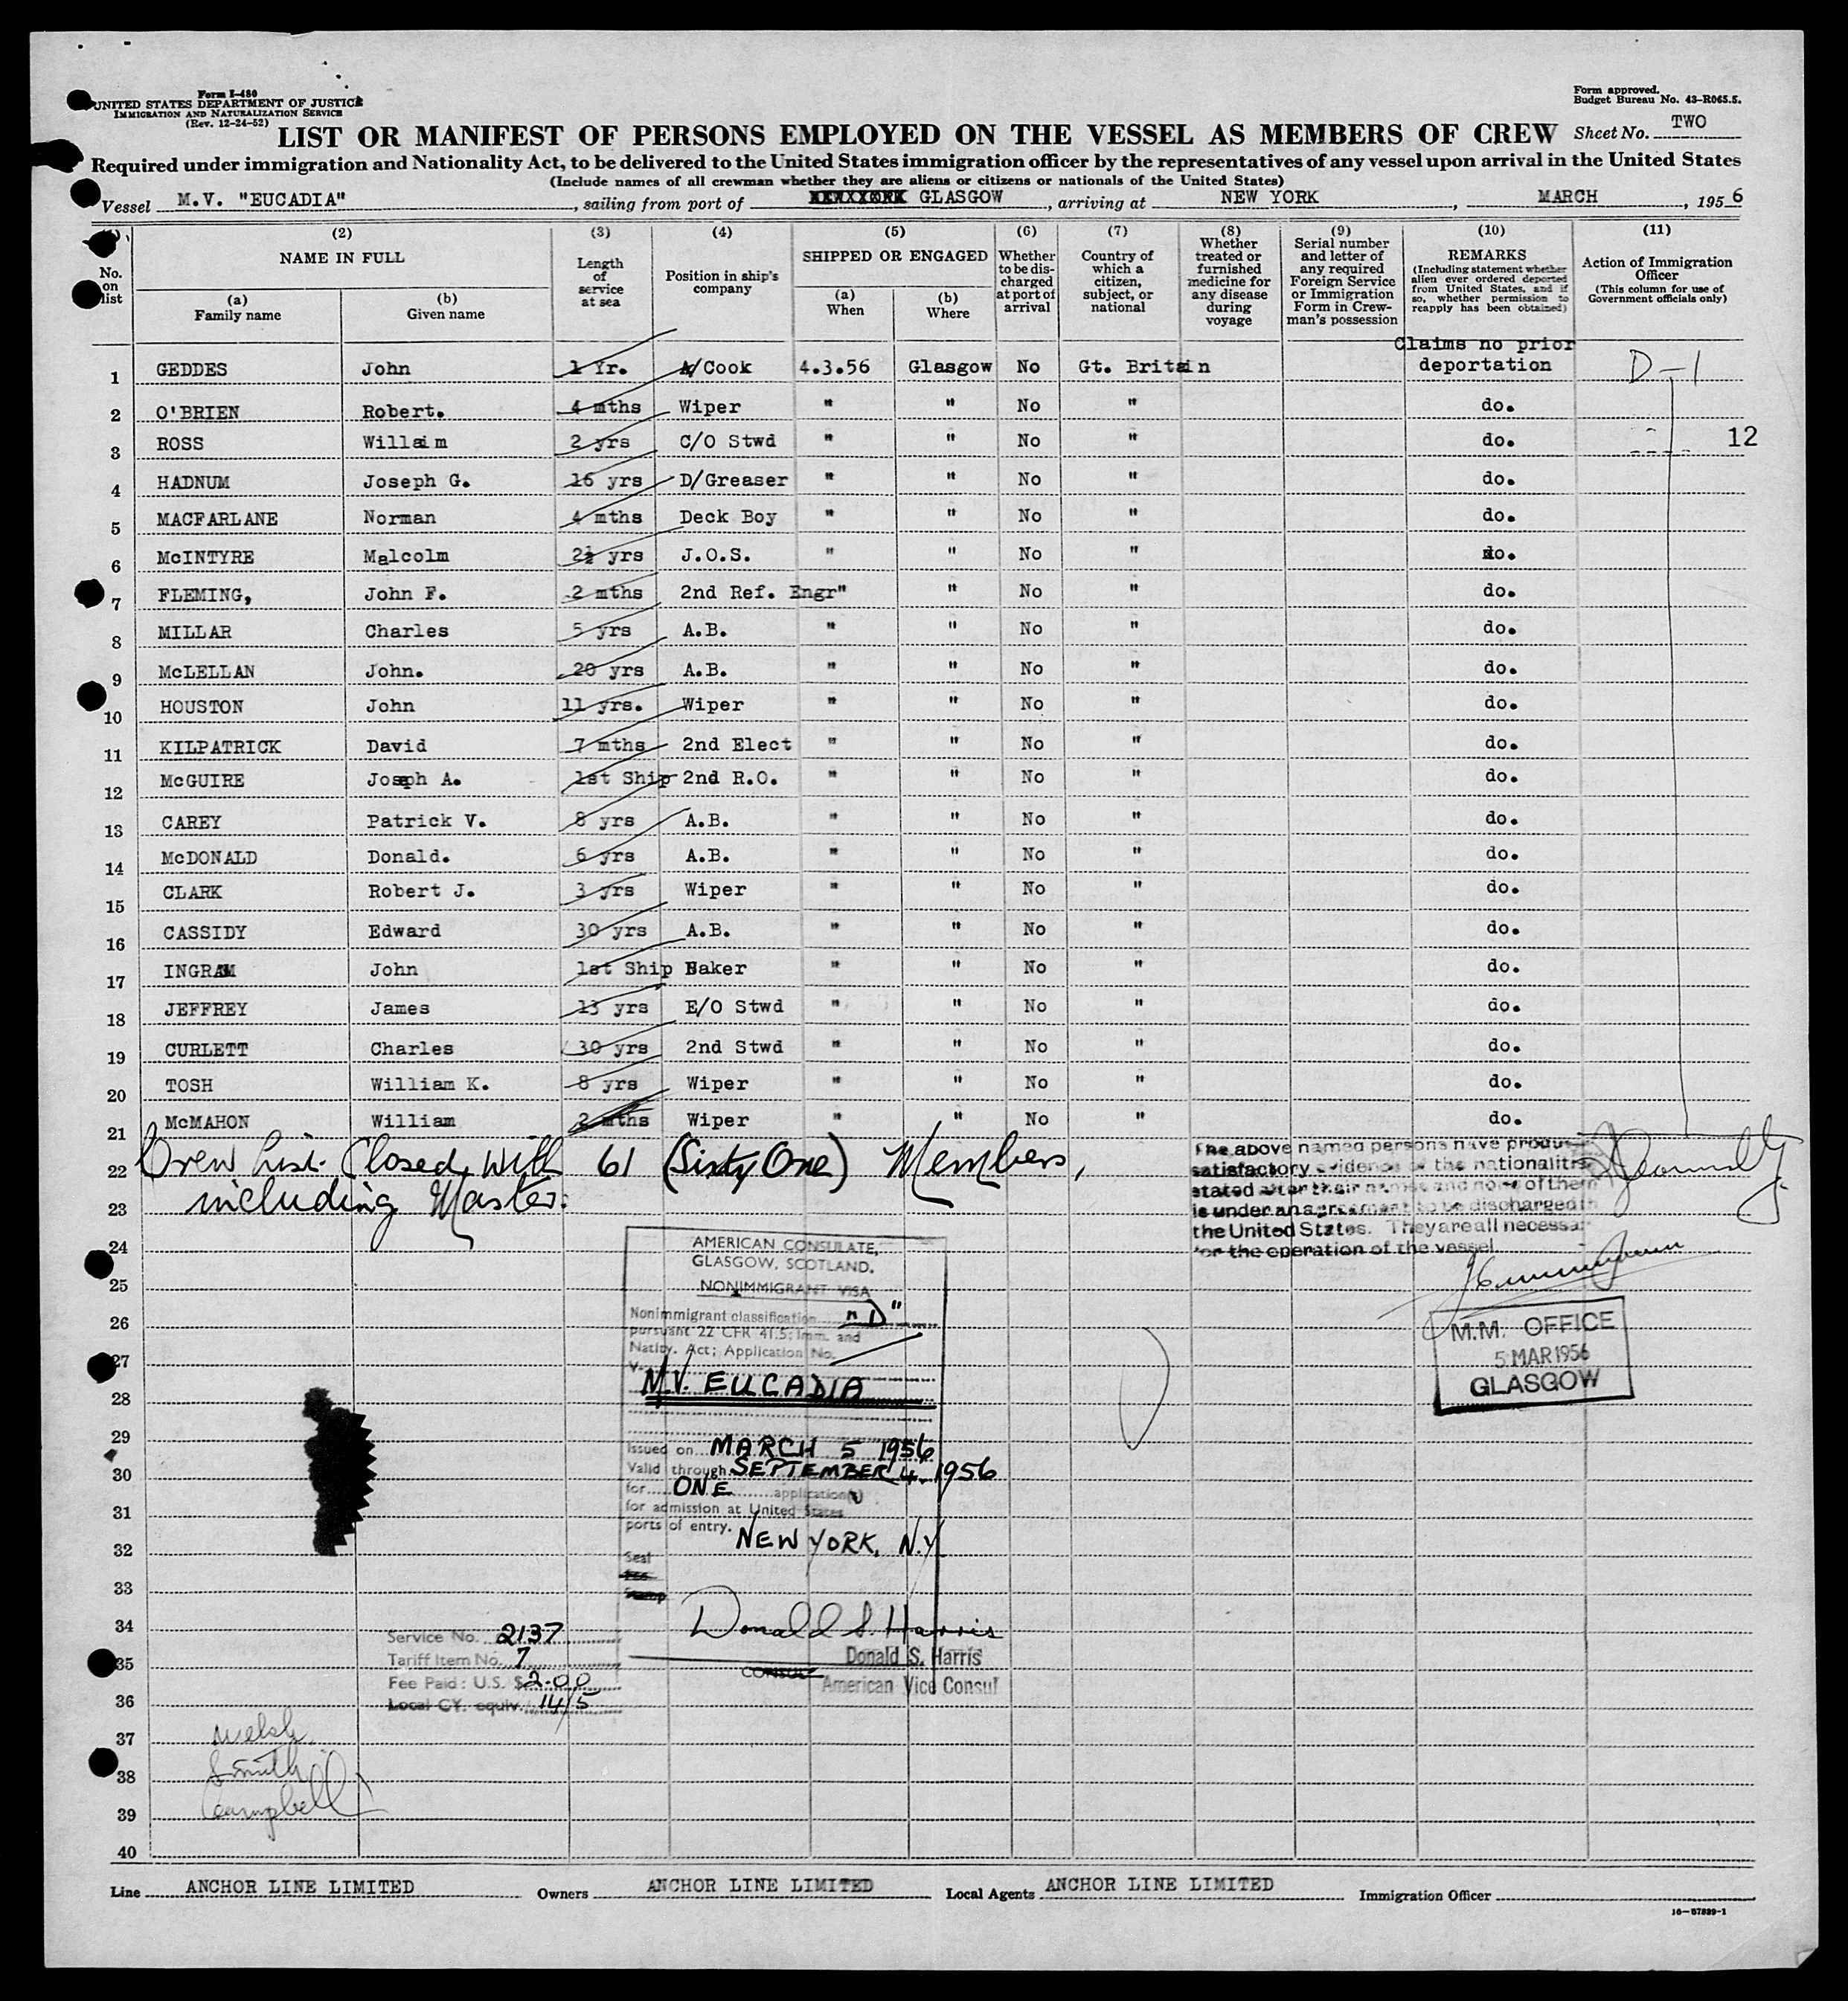 Form I-480
UNITED STATES DEPARTMENT OF JUSTICE
IMMIGRATION AND NATURALIZATION SERVICE
(Rev. 12-24-52)
Form approved.
Budget Bureau No. 43-R065.5.
LIST OR MANIFEST OF PERSONS EMPLOYED ON THE VESSEL AS MEMBERS OF CREW Sheet No. TWO
Required under immigration and Nationality Act, to be delivered to the United States immigration officer by the representatives of any vessel upon arrival in the United States
(Include names of all crewman whether they are aliens or citizens or nationals of the United States)
Vessel M.V. "EUCADIA", sailing from port of GLASGOW, arriving at NEW YORK, MARCH, 1956
(2) (3) (4) (5) (6) (7) (8) (9) (10) (11)
No. on list
NAME IN FULL
(a) Family name
(b) Given name
Length of service at sea
Position in ship's company
SHIPPED OR ENGAGED
(a) When
(b) Where
Whether to be discharged at port of arrival
Country of which a citizen, subject, or national
Whether treated or furnished medicine for any disease during voyage
Serial number and letter of any required Foreign Service or Immigration Form in Crewman's possession
REMARKS
(Including statement whether alien ever ordered deported from United States, and if so, whether permission to reapply has been obtained)
Action of Immigration Officer
(This column for use of Government officials only)
1 GEDDES John 1 Yr. A/Cook 4.3.56 Glasgow No Gt. Britain Claims no prior deportation D-1
2 O'BRIEN Robert. 4 mths Wiper " " No " do.
3 ROSS Willaim 2 yrs C/O Stwd " " No " do. 12
4 HADNUM Joseph G. 16 yrs D/Greaser " " No " do.
5 MACFARLANE Norman 4 mths Deck Boy " " No " do.
6 McINTYRE Malcolm 2½ yrs J.O.S. " " No " do.
7 FLEMING, John F. 2 mths 2nd Ref. Engr" " No " do.
8 MILLAR Charles 5 yrs A.B. " " No " do.
9 McLELLAN John. 20 yrs A.B. " " No " do.
10 HOUSTON John 11 yrs. Wiper " " No " do.
11 KILPATRICK David 7 mths 2nd Elect " " No " do.
12 McGUIRE Joseph A. 1st Ship 2nd R.O. " " No " do.
13 CAREY Patrick V. 8 yrs A.B. " " No " do.
14 McDONALD Donald. 6 yrs A.B. " " No " do.
15 CLARK Robert J. 3 yrs Wiper " " No " do.
16 CASSIDY Edward 30 yrs A.B. " " No " do.
17 INGRAM John 1st Ship Baker " " No " do.
18 JEFFREY James 13 yrs E/O Stwd " " No " do.
19 CURLETT Charles 30 yrs 2nd Stwd " " No " do.
20 TOSH William K. 8 yrs Wiper " " No " do.
21 McMAHON William 2 mths Wiper " " No " do.
22 Crew List Closed with 61 (Sixty One) Members,
23 including Master.
The above named persons have produced
satisfactory evidence of the nationalities
stated after their names and none of them
is under an agreement to be discharged in
the United States. They are all necessary
for the operation of the vessel
24
25
26
27
28
29
30
31
32
33
34
35
36
37
38
39
40
AMERICAN CONSULATE,
GLASGOW, SCOTLAND.
NONIMMIGRANT VISA
Nonimmigrant classification "D"
pursuant 22 CFR 41.5: Imm. and
Natlty. Act; Application No.
M.V. EUCADIA
Issued on MARCH 5 1956
Valid through SEPTEMBER 4, 1956
for ONE application(s)
for admission at United States
ports of entry. NEW YORK, N.Y.
Seal
Fee
Stamp
Donald S. Harris
Donald S. Harris
CONSUL
American Vice Consul
M.M. OFFICE
5 MAR 1956
GLASGOW
Service No. 2137
Tariff Item No. 7
Fee Paid: U.S. $2.00
Local CY. equiv. 14/5
Welsh
Smith
Campbell
Line ANCHOR LINE LIMITED Owners ANCHOR LINE LIMITED Local Agents ANCHOR LINE LIMITED Immigration Officer
16-67839-1